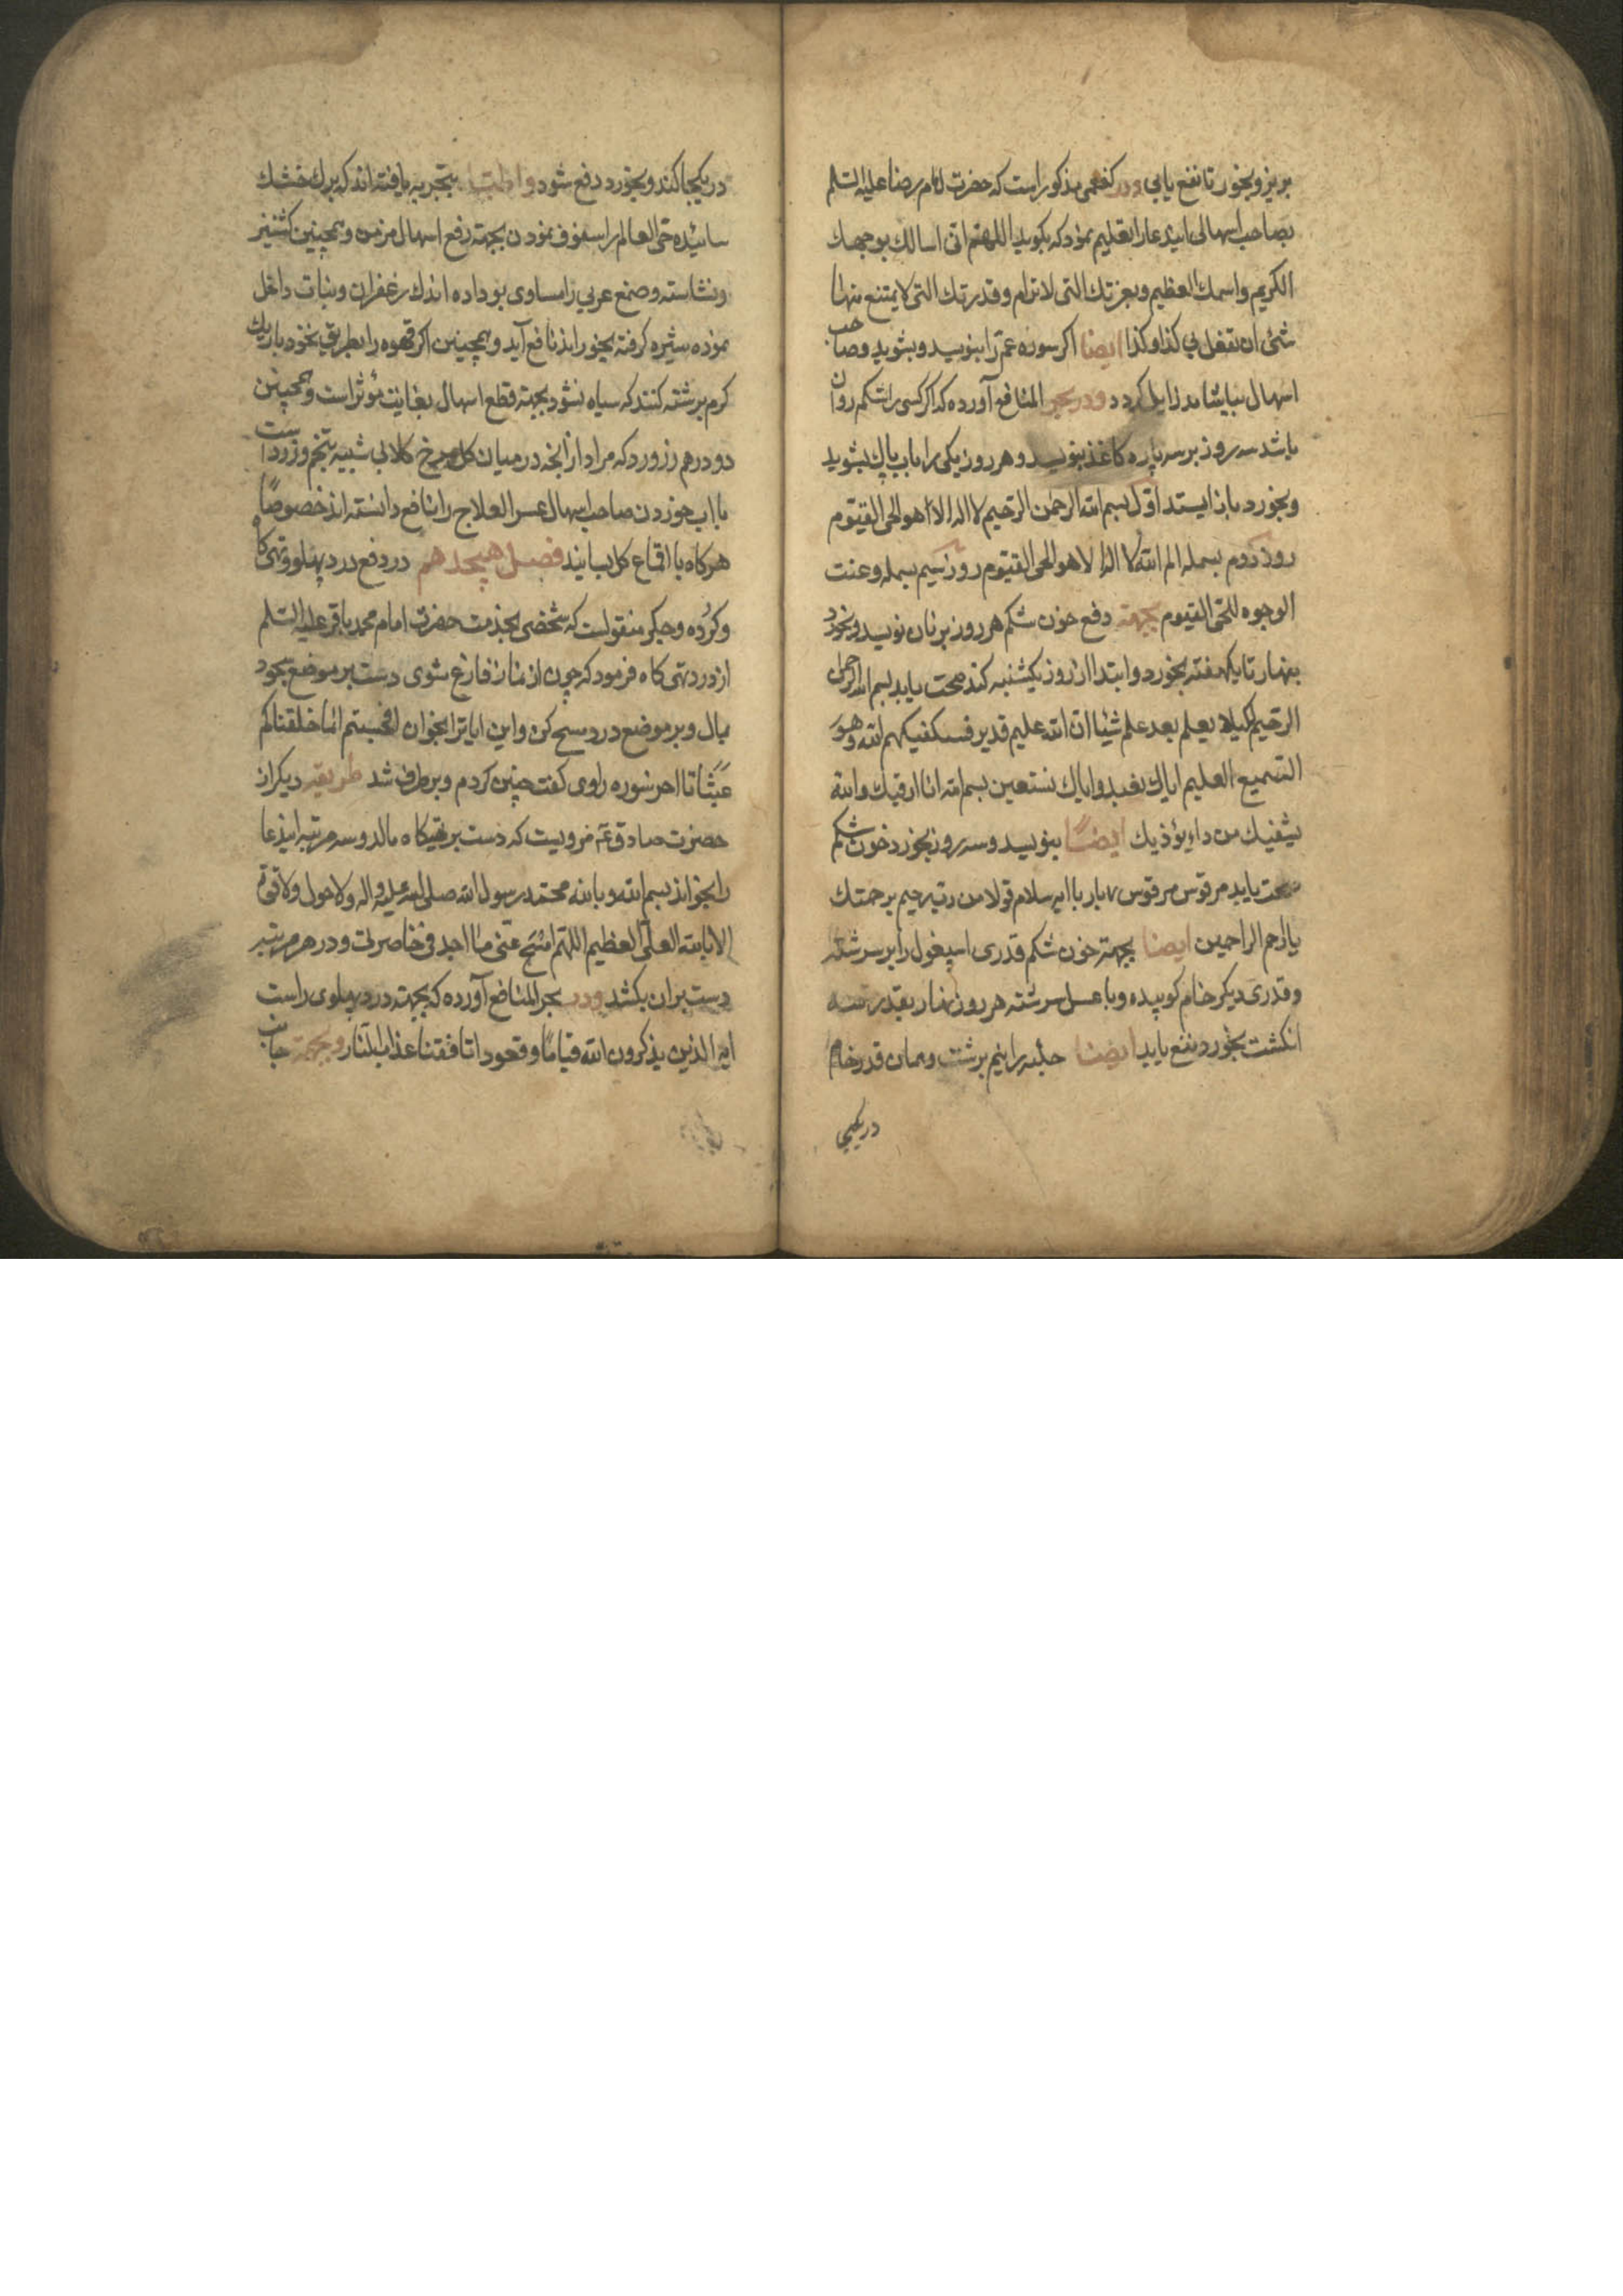 بریز و بخور تا نفع یابی و در کفعمی مذکور است که حضرت امام رضا علیه السلم
بصاحب اسهالی ایندعا را تعلیم نمود که بکوید اللهم انی اسالك بوجهك
الکریم واسمك العظیم وبعزتك التی لاترام وقدرتك التی لایمتنع منها
شئ ان تفعل بی کذا وکذا ایضا اکر سوره عم را بنویسد و بشوید و صاحب
اسهال بیاشامد زایل کردد و در بحر المنافع آورده که اکر کسی را شکم روان
باشد سه روز بر سه پاره کاغذ بنویسد و هر روز یکی را باب پاك بشوید
و بخورد باز ایستد اول بسم الله الرحمن الرحیم لا اله الا هو الحی القیوم
روز دوم بسمله الم الله لا اله الا هو الحی القیوم روز سیم بسمله وعنت
الوجوه للحی القیوم بجهته دفع خون شکم هر روز بر نان نویسد و بخورد
بنهار تا یکهفته بخورد و ابتدا از روز یکشنبه کند صحت یابد بسم الله الرحمن
الرحیم لکیلا یعلم بعد علم شیئا ان الله علیم قدیر فسیکفیکهم الله وهو
السمیع العلیم ایاك نعبد وایاك نستعین بسم الله انا ارقیك والله
یشفیك من داء یؤذیك ایضا بنویسد و سه روز بخورد خون شکم
صحت یابد مرقوس مرقوس ۷ بار با ایه سلام قولا من رب رحیم برحمتك
یا ارحم الراحمین ایضا بجهته خون شکم قدری اسپغول را بر سرشته
و قدری دیکر خام کوبیده و با عسل سرشته هر روز بنهار بقدر سه
انکشت بخورد نفع یابد ایضا حلبه را نیم برشت و همان قدر خام
در یکجا
در یکجا کند و بخورد دفع شود و اطبا بتجربه یافته اند که برك خشك
سائیده حی العالم را سفوف نمودن بجهته رفع اسهال مزمن و همچنین کشنیز
و نشاسته و صمغ عربی را مساوی بو داده اندك زعفران و نبات داخل
نموده شیره کرفته بخورانند نافع آید و همچنین اکر قهوه را بطریق نخود باریك
کرم برشته کنند که سیاه نشود بجهته قطع اسهال بغایت مؤثر است و همچنین
دو درهم زرورد که مراد از آنچه در میان کل سرخ کلابی شبیه بتخم و زرد است
با آب خوردن صاحب اسهال عسر العلاج را نافع دانسته اند خصوصاً
هرکاه با اقماع کل بسایند فصل هیجدهم در دفع درد پهلو و تهی کاه
و کرده و جکر منقولست که شخصی بخدمت حضرت امام محمد باقر علیه السلم
از درد تهی کاه فرمود که چون از نماز فارغ شوی دست بر موضع سجود
بمال و بر موضع درد مسح کن و این ایاترا بخوان افحسبتم انما خلقناکم
عبثا تا اخر سوره راوی کفت چنین کردم و برطرف شد طریقه دیکر از
حضرت صادق ع مرویست که دست بر تهیکاه مالد و سه مرتبه ایندعا
را بخواند بسم الله وبالله محمد رسول الله صلی الله علیه واله ولا حول ولا قوة
الا بالله العلی العظیم اللهم امسح عنی ما اجد فی خاصرتی و در هر مرتبه
دست بر ان بکشد و در بحر المنافع آورده که بجهته درد پهلوی راست
ایه الذین یذکرون الله قیاما وقعودا تا فقنا عذاب النار و بجهته جانب